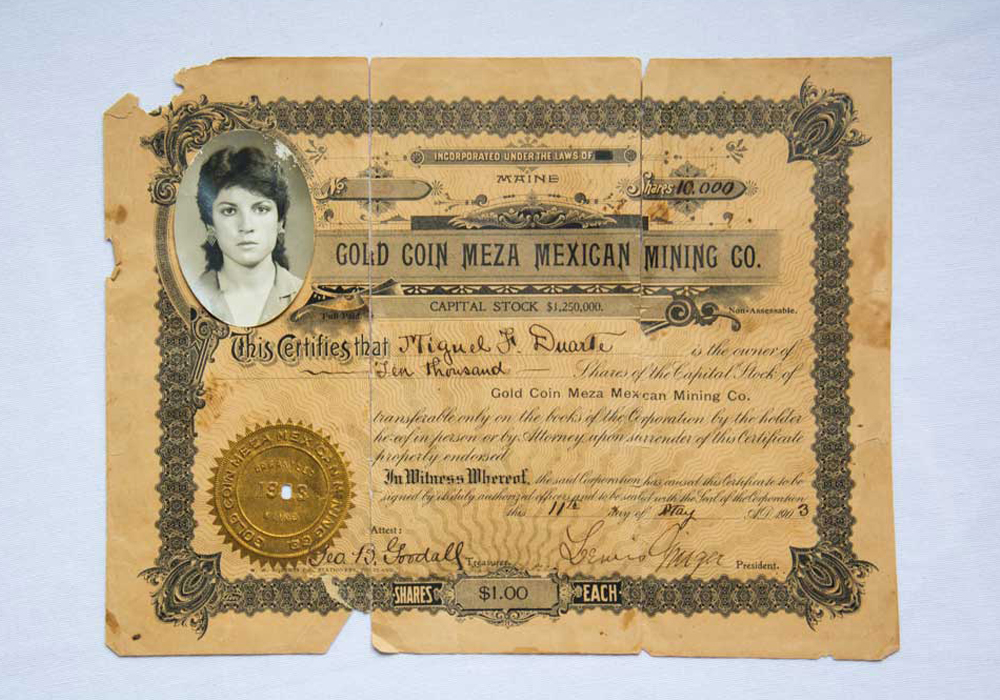 INCORPORATED UNDER THE LAWS OF
MAINE
No
Shares 10.000
GOLD COIN MEZA MEXICAN MINING CO.
CAPITAL STOCK $1,250,000.
Full Paid
Non-Assessable.
This Certifies that Miguel F. Duarte is the owner of
Ten thousand Shares of the Capital Stock of
Gold Coin Meza Mexican Mining Co.
transferable only on the books of the Corporation by the holder
hereof in person or by Attorney upon surrender of this Certificate
properly endorsed.
In Witness Whereof, the said Corporation has caused this Certificate to be
signed by its duly authorized officers and to be sealed with the Seal of the Corporation
this 11th day of May A.D. 1903
GOLD COIN MEZA MEXICAN MINING CO.
1903
MAINE
Attest:
Geo. B. Goodall Treasurer.
Lewis President.
SHARES $1.00 EACH